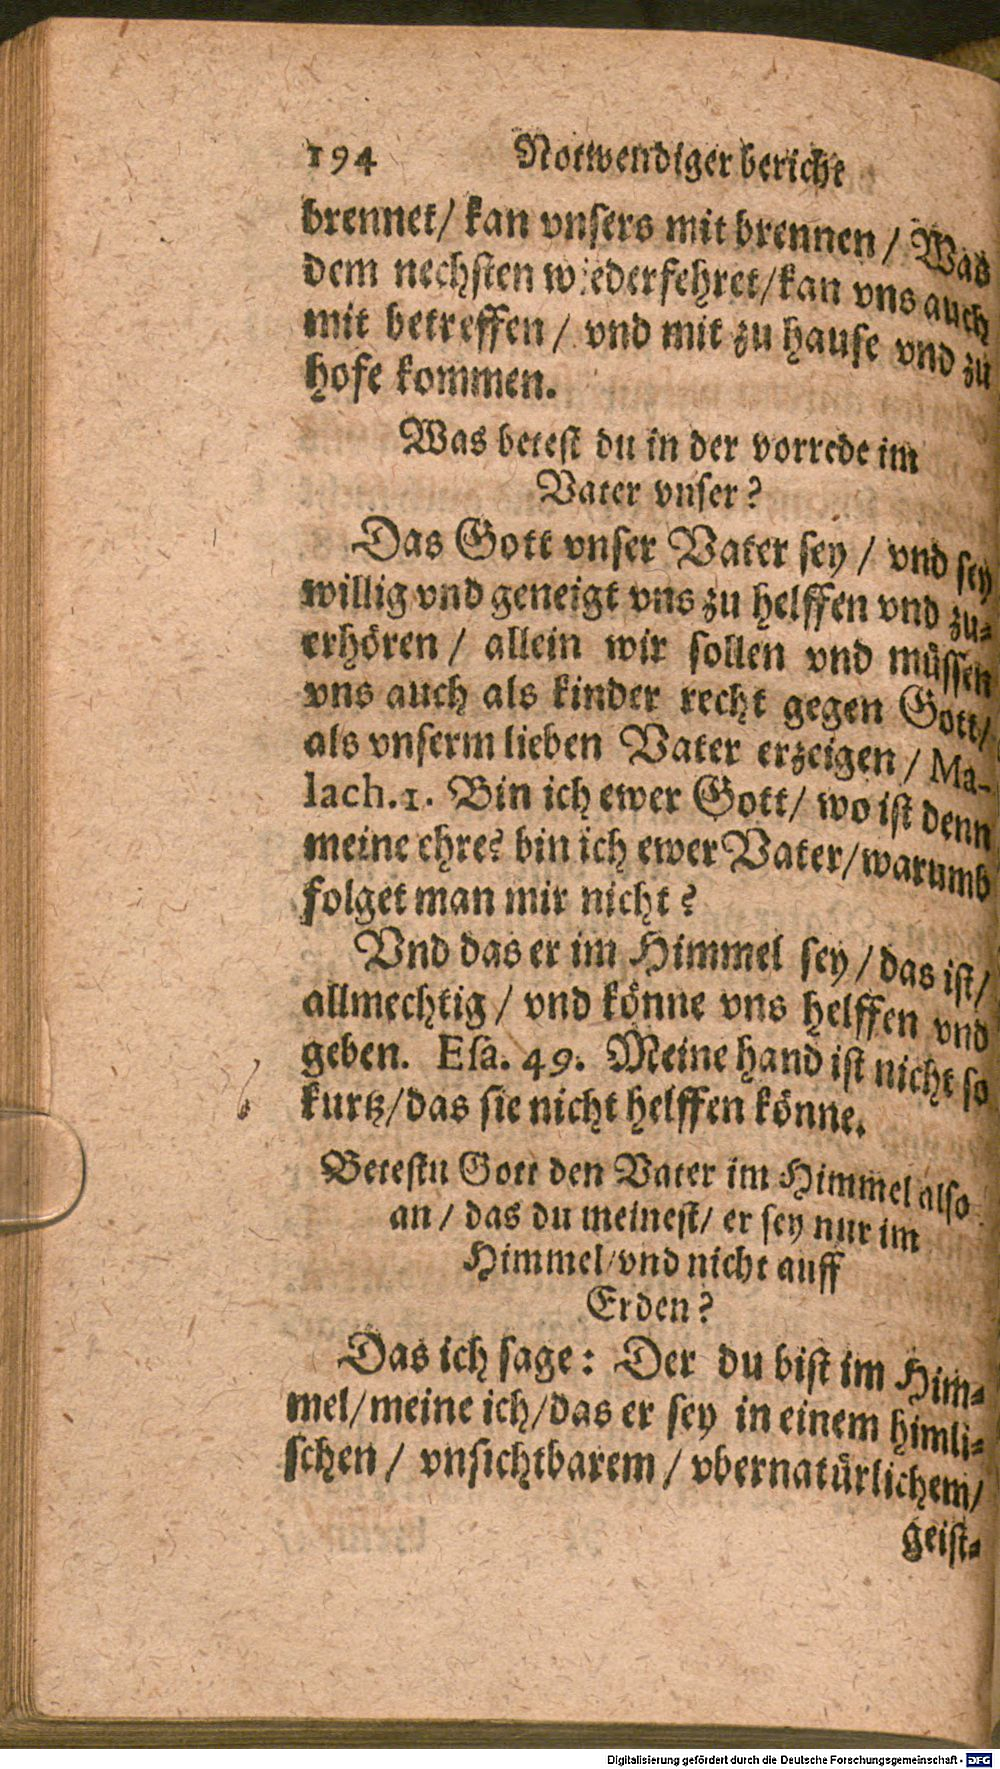 194 Notwendiger bericht
brennet/ kan vnsers mit brennen / Was
dem nechsten wiederfehret/kan vns auch
mit betreffen / vnd mit zu hause vnd zu
hofe kommen.
Was betest du in der vorrede im
Vater vnser?
Das Gott vnser Vater sey / vnd sey
willig vnd geneigt vns zu helffen vnd zu-
erhören / allein wir sollen vnd müssen
vns auch als kinder recht gegen Gott/
als vnserm lieben Vater erzeigen / Ma-
lach.1. Bin ich ewer Gott/ wo ist denn
meine ehre? bin ich ewer Vater/warumb
folget man mir nicht?
Vnd das er im Himmel sey / das ist/
allmechtig / vnd könne vns helffen vnd
geben. Esa. 49. Meine hand ist nicht so
kurtz/das sie nicht helffen könne.
Betestu Gott den Vater im Himmel also
an / das du meinest/ er sey nur im
Himmel/vnd nicht auff
Erden?
Das ich sage: Der du bist im Him-
mel/meine ich/das er sey in einem himli-
schen / vnsichtbarem / vbernatürlichem/
geist-
Digitalisierung gefördert durch die Deutsche Forschungsgemeinschaft - DFG